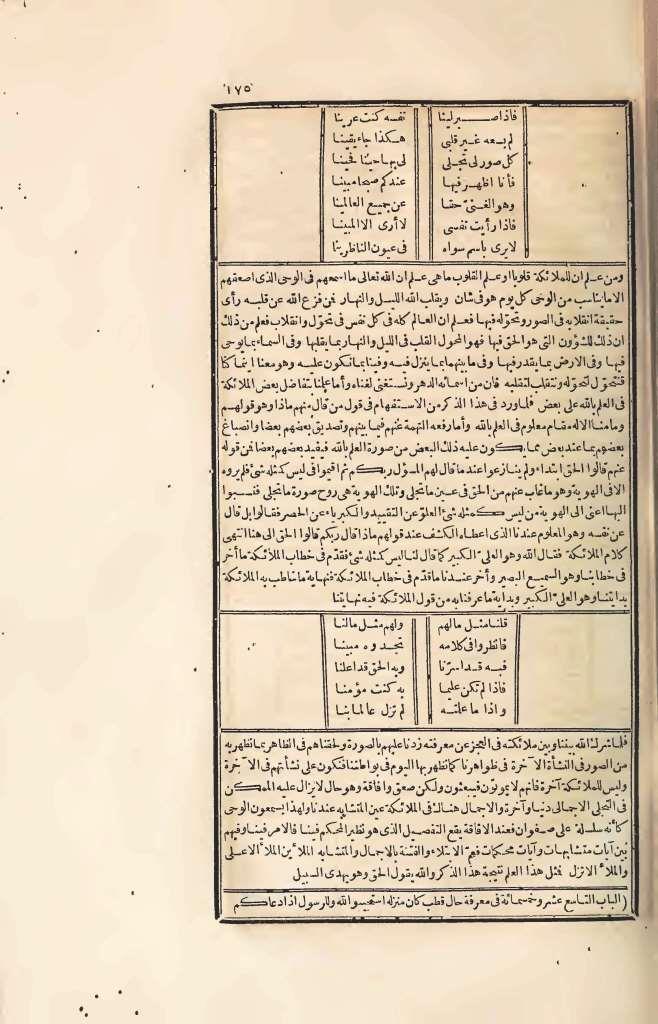 ١٧٥
فاذا صبر لينا نفسه كنت عرينا
لم يسعه غير قلبى هكذا جاء يقينا
كل صور لى تجلى لى بها حينا فحينا
فأنا اظهر فيها عندكم صبحا مبينا
وهو الغنىّ حقا عن جميع العالمينا
فاذا رأيت نفسى لا أرى الا المبينا
لا يرى باسم سواه فى عيون الناظرينا
ومن علم ان للملائكة قلوبا وعلم القلوب ما هى علم ان الله تعالى ما أسمعهم فى الوحى الذى أصعقهم
الا ما يناسب من الوحى كل يوم هو فى شان ويقلب الله الليل والنهار فمن فزع الله عن قلبه رأى
حقيقة انقلابه فى الصور وتحوّله فيها فعلم ان العالم كله فى كل نفس فى تحوّل وانقلاب فعلم من ذلك
ان ذلك للشؤون التى هو الحق فيها فهو المحول القلب فى الليل والنهار بما يقلبها وفى السماء بما يوحى
فيها وفى الارض بما يقدر فيها وفى ما بينهما بما ينزل فيه وفينا بما نكون عليه وهو معنا اينما كنا
فنتحوّل لتحوّله ونتقلب لتقلبه فان من اسمائه الدهر ونستغنى لغناه وأما علمنا بتفاضل بعض الملائكة
فى العلم بالله على بعض فلما ورد فى هذا الذكر من الاستفهام فى قول من قال منهم ماذا وهو قولهم
وما منا الا له مقام معلوم فى العلم بالله وأما رفعه التهمة عنهم فيما بينهم وتصديق بعضهم بعضا وانصباغ
بعضهم بما عند بعض مما يكون عليه ذلك البعض من صورة العلم بالله فيفيد بعضهم بعضا فمن قوله
عنهم قالوا الحق ابتداء ولم ينازعوا عندما قال لهم المسؤل ربكم ثم اقيموا فى ليس كمثله شئ فلم يروه
الا فى الهوية وهو ما غاب عنهم من الحق فى عين ما تجلى وتلك الهوية هى روح صورة ما تجلى فنسبوا
اليها اعنى الى الهوية من ليس كمثله شئ العلوّ عن التقييد والكبرياء عن الحصر فقالوا بل قال
عن نفسه وهو المعلوم عندنا الذى اعطاه الكشف عند قولهم ماذا قال ربكم قالوا الحق الى هنا انتهى
كلام الملائكة فقال الله وهو العلىّ الكبير كما قال لنا ليس كمثله شئ فقدم فى خطاب الملائكة ما أخر
فى خطابنا وهو السميع البصير وأخر عندنا ما قدم فى خطاب الملائكة فنهاية ما خاطب به الملائكة
بدايتنا وهو العلىّ الكبير وبداية ما عرفنا به من قول الملائكة فيه نهايتنا
قلنا مثل ما لهم ولهم مثل ما لنا
فانظروا فى كلامه تجدوه مبينا
فبه قد اسرنا وبه الحق قد اعلنا
فاذا لم تكن عليما به كنت مؤمنا
واذا ما علمته لم تزل عالما بنا
فلما شرك الله بيننا وبين ملائكته فى العجز عن معرفته زدنا عليهم بالصورة ولحقناهم فى الظاهر بما نظهر به
من الصور فى النشأة الآخرة فى ظواهرنا كما نظهر بها اليوم فى بواطننا فنكون على نشأتهم فى الآخرة
وليس للملائكة آخرة فانهم لا يموتون فيبعثون ولكن صعق وافاقة وهو حال لا يزال عليه الممكن
فى التجلى الاجمالى دنيا وآخرة والاجمال هنالك فى الملائكة عين المتشابه عندنا ولهذا يسمعون الوحى
كأنه سلسلة على صفوان فعند الافاقة يقع التفصيل الذى هو نظير المحكم فينا فالامر فينا وفيهم
بين آيات متشابهات وآيات محكمات فعمّ الابتلاء والفتنة بالاجمال والمتشابه الملأين الملأ الاعلى
والملأ الانزل فمثل هذا العلم نتيجة هذا الذكر والله يقول الحق وهو يهدى السبيل
(الباب التاسع عشر وخمسمائة فى معرفة حال قطب كان منزله استجيبوا لله وللرسول اذا دعاكم